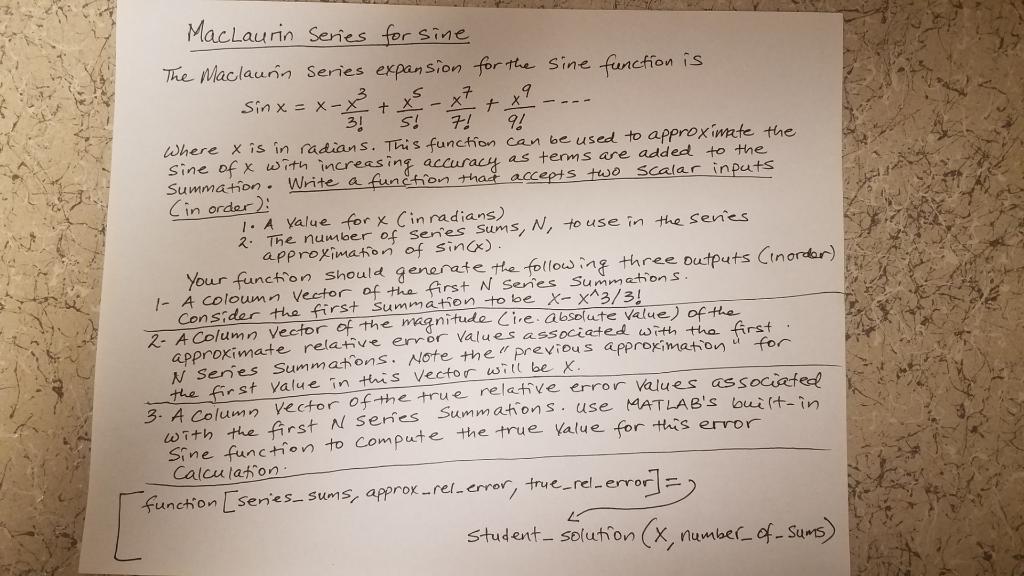 MacLaurin Series for sine
The Maclaurin Series expansion for the Sine function is
Sin x = x - x^3/3! + x^5/5! - x^7/7! + x^9/9! ----
Where x is in radians. This function can be used to approximate the
Sine of x with increasing accuracy as terms are added to the
Summation. Write a function that accepts two scalar inputs
(in order):
1. A Value for x (in radians)
2. The number of Series Sums, N, to use in the Series
approximation of Sin(x).
Your function should generate the following three outputs (in order)
1- A coloumn Vector of the first N Series Summations.
Consider the first Summation to be X-X^3/3!
2- A Column Vector of the magnitude (i.e. absolute Value) of the
approximate relative error Values associated with the first
N Series Summations. Note the "previous approximation" for
the first Value in this Vector will be X.
3. A Column Vector of the true relative error Values associated
with the first N Series Summations. use MATLAB's built-in
Sine function to compute the true Value for this error
Calculation.
function [series_sums, approx_rel_error, true_rel_error] =
student_solution (X, number_of_sums)